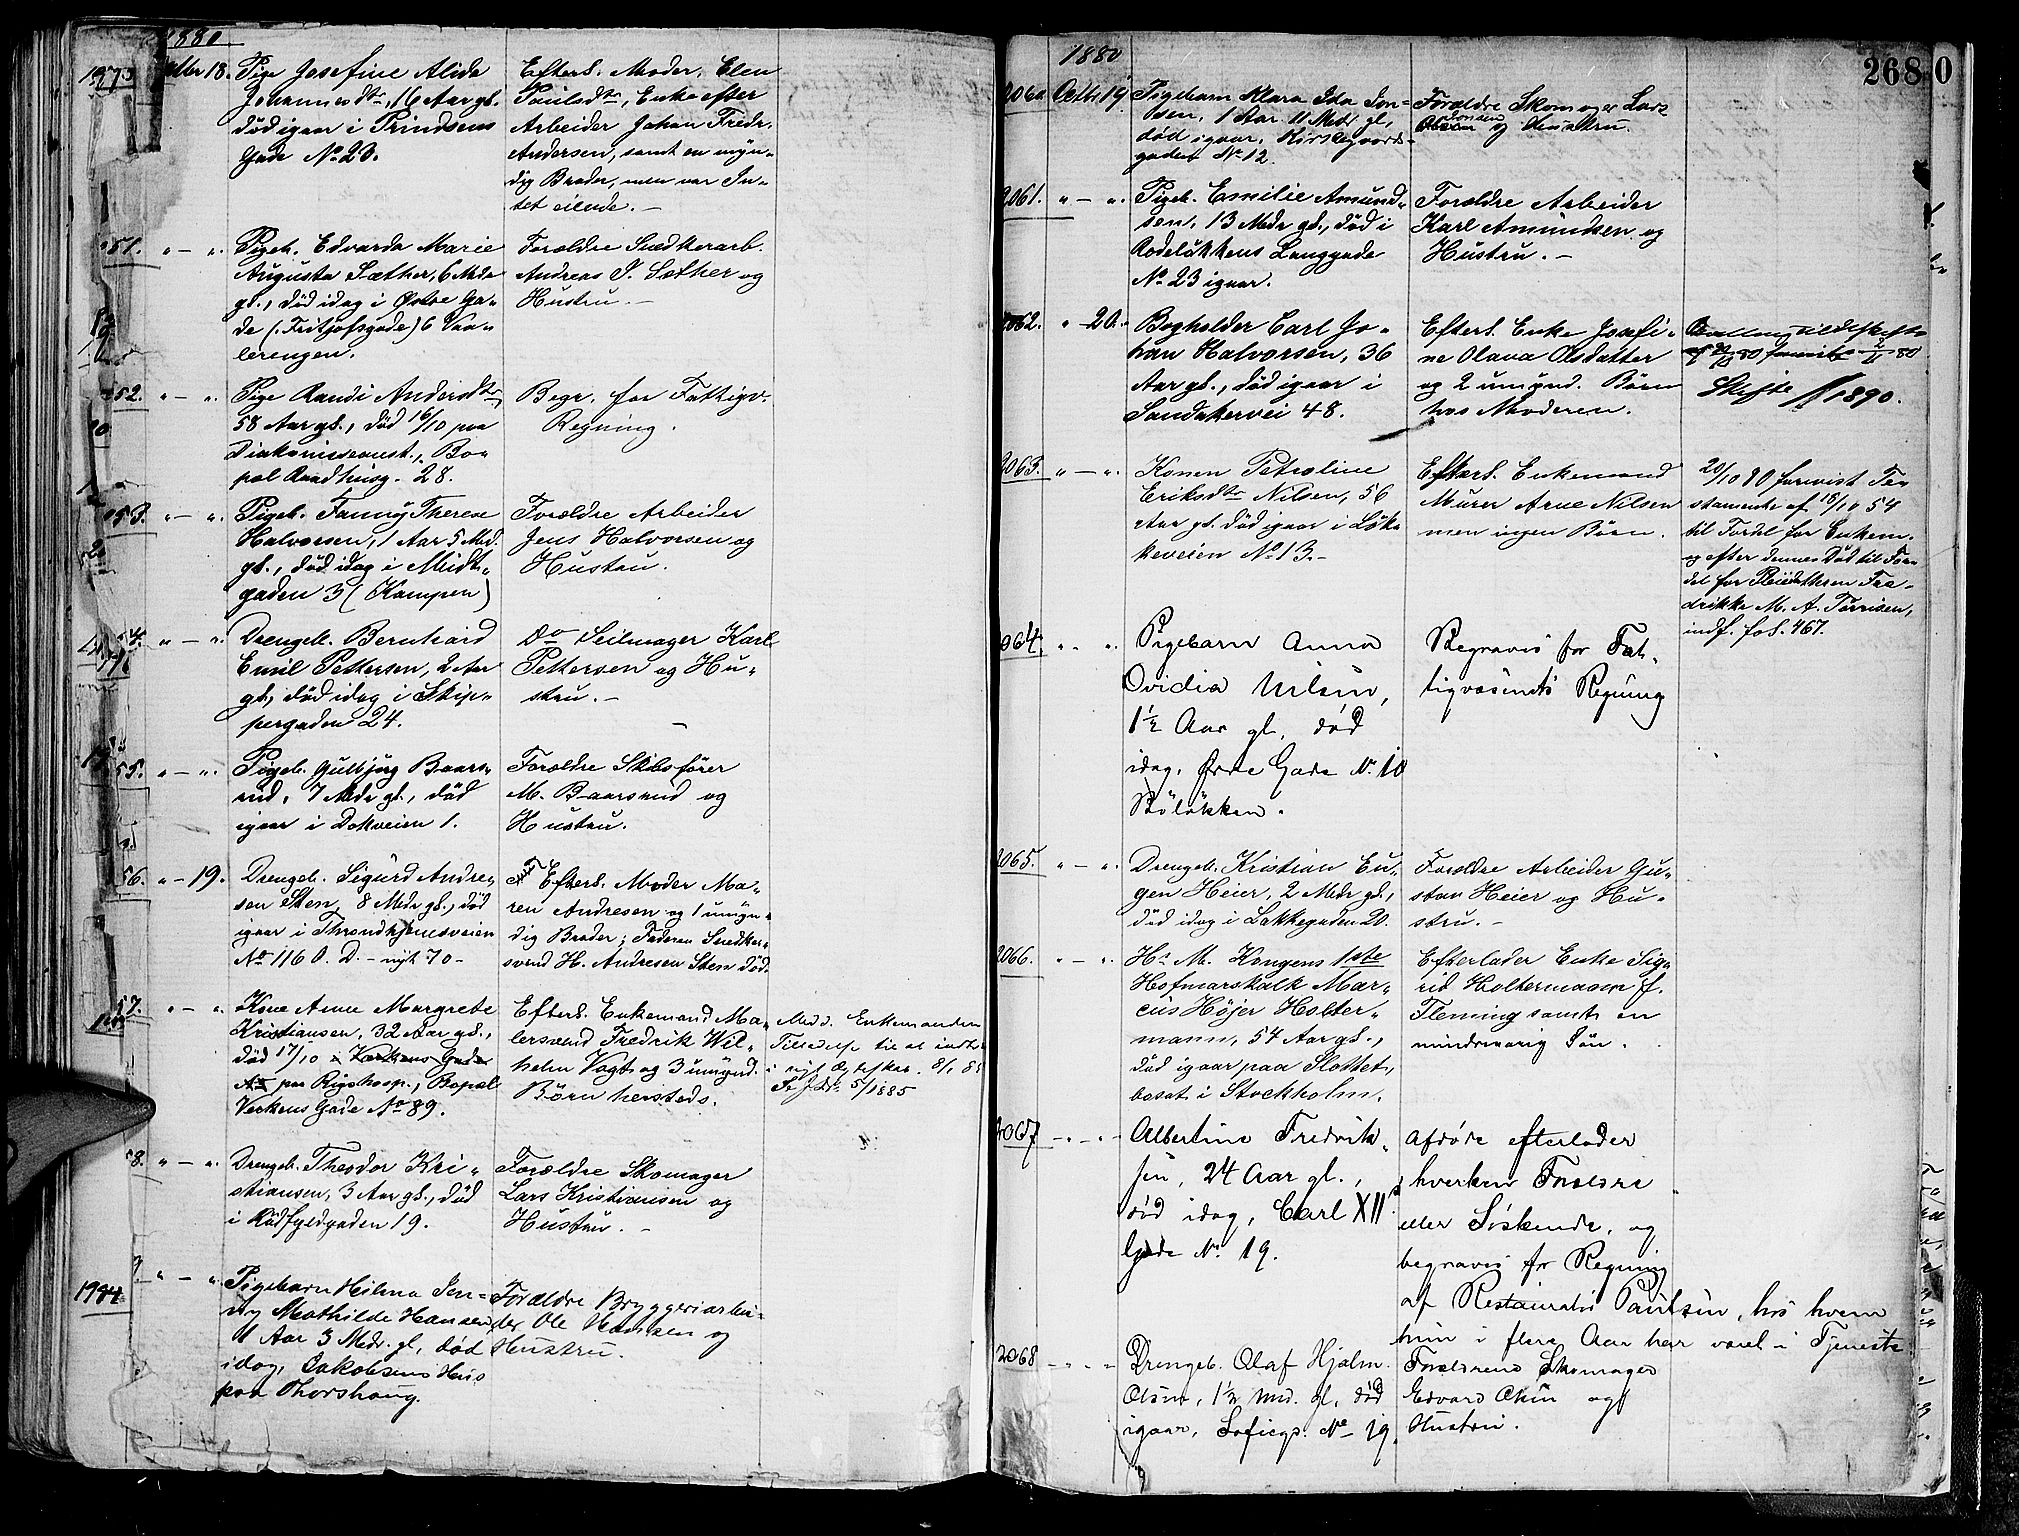 1880
Pige Josefine Alida
Johannesdtr, 16 Aar gl.
død igaar i Prindsens
Gade No 23.
Efterl. Moder, Elen
Paulsdtr, Enke efter
Arbeider Johan Fredr.
Andersen, samt en myn-
dig Broder, men var In-
tet eiende. —
51. " — ". Pigeb. Edvarda Marie
Augusta Sæther, 6 Mdr
gl., død idag i Østre Ga-
de (Fritjofsgade) 6 Vaa-
lerengen.
Forældre Snedkerarb.
Andreas P. Sæther og
Hustru. —
52. " — ". Pige Randi Andersdtr
58 Aar gl., død 16/10 paa
Diakonisseanst., Bo-
pæl Raadhusg. 28.
Begr. for Fattigv.
Regning.
53. " — ". Pigeb. Fanny Therese
Halvorsen, 1 Aar 5 Md.
gl., død idag i Midt-
gaden 3 (Kampen)
Forældre Arbeider
Jens Halvorsen og
Hustru.
54. " — ". Drengeb. Bernhard
Emil Pettersen, 2 Aar
gl, død idag i Skip-
pergaden 24.
Do Seilmager Karl
Pettersen og Hu-
stru. —
55. " — ". Pigeb. Gulbjørg Baars-
rud, 7 Mdr gl., død
igaar i Dokveien 1.
Forældre Skibsfører
M. Baarsrud og
Hustru.
56. " — 19. Drengeb. Sigurd Andre-
sen Sten, 8 Mdr gl., død
igaar i Throndhjemsveien
No 116 O. D. – nyt 70 –
Efterl. Moder Ma-
ren Andresen og 1 umyn-
dig Broder; Faderen Snedker-
svend H. Andresen Sten død.
57. " — ". Kone Anne Margrete
Kristiansen, 32 Aar gl.,
død 17/10 i Verkens Gade
No paa Rigshosp., Bopæl
Verkens Gade No 89.
Efterl. Enkemand Ma-
lersvend Fredrik Wil-
helm Vogt og 3 umynd.
Børn hersteds.
Medd. Enkemanden
Tilladelse til at indtr.
i nyt Ægteskab. 8/1 85
5/1885
58. " — ". Drengeb. Theodor Kri-
stiansen, 3 Aar gl., død
i Rødfyldgaden 19.
Forældre Skomager
Lars Kristiansen og
Hustru. —
" — ". Pigebarn Hilma Jen-
ny Mathilde Hansen,
1 Aar 3 Mdr. gl, død
idag, Jakobsens Hus
paa Thorshaug.
Forældre Bryggeriarbei-
der Ole Hansen og
Hustru.
268 0
1880
2060 Octbr 19 Pigebarn Klara Ida Jon-
sen, 1 Aar 11 Mdr gl,
død igaar, Kirkegaards-
gaden No 12.
Forældre Skomager Lars
Jonsen og Hustru.
2061. " — ". Pigeb. Emilie Amund-
sen, 13 Mdr gl., død i
Rodeløkkens Langgade
No 23 igaar.
Forældre Arbeider
Karl Amundsen og
Hustru. —
2062. " — 20. Bogholder Carl Jo-
han Halvorsen, 36
Aar gl., død igaar i
Sandakervei 48.
Efterl. Enke Josefi-
ne Olava Olsdatter
og 2 umynd. Børn
hos Moderen.
Skifte 1890.
2063. " — ". Konen Petroline
Eriksdtr Nilsen, 56
Aar gl. død igaar i Løk-
keveien No 13. –
Efterl. Enkemand
Murer Arne Nilsen
men ingen Børn.
20/10 80 forevist Te-
stamente af 18/10 54
til Fordel for Enkem.
og efter dennes Død til For-
del for Pleiedatteren Fre-
drikke M. A. Tørrisen,
indf. fol. 467.
2064. " . ". Pigebarn Anna
Ovidia Nilsen,
1 1/2 Aar gl, død
idag, Øvre Gade No 10
Bøløkken.
Begraves for Fat-
tigvæsenets Regning
2065. " — ". Drengeb. Kristian Eu-
gen Heier, 2 Mdr gl.,
død idag i Lakkegaden 20.
Forældre Arbeider Gu-
stav Heier og Hu-
stru. –
2066. " — ". Hs M. Kongens 1ste
Hofmarskalk Mar-
cus Højer Holter-
mann, 54 Aar gl.,
død igaar paa Slottet,
bosat i Stockholm.
Efterlader Enke Sig-
rid Holtermann f.
Fleming samt en
mindreaarig Søn.
2067 — " — Albertine Fredrik-
sen, 24 Aar gl.,
død idag, Carl XII's
Gade No 19.
Afdøde efterlader
hverken Forældre
eller Søskende, og
begraves for Regning
af Restauratør Paulsen, hos hvem
hun i flere Aar har været i Tjeneste
2068 — " — Drengeb. Olaf Hjalm.
Olsen, 1 1/2 Md. gl, død
igaar, Sofiegs. No 19.
Forældrene Skomager
Edvard Olsen og
Hustru.